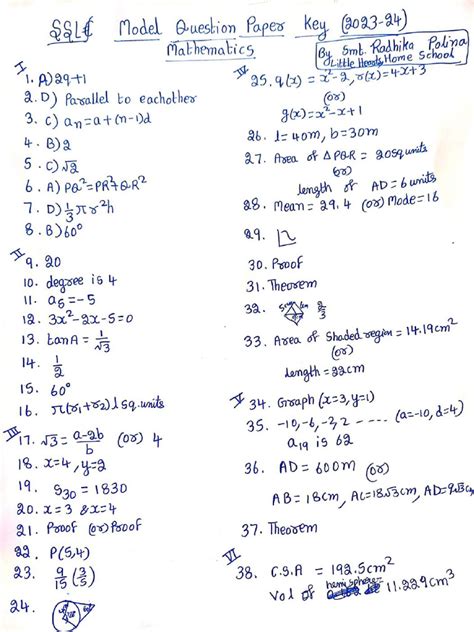 SSLC Model Question Paper Key (2023-24)
Mathematics
By Smt. Radhika Polina
Little Hearts Home School
I
1. A) 2q+1
2. D) Parallel to eachother
3. C) aₙ=a+(n-1)d
4. B) 2
5. C) √2
6. A) PQ²=PR²+QR²
7. D) 1/3 πr²h
8. B) 60°
II
9. 20
10. degree is 4
11. a₅=-5
12. 3x²-2x-5=0
13. tanA = 1/√3
14. 1/2
15. 60°
16. π(r₁+r₂)l sq.units
III
17. √3 = a-2b/b (or) 4
18. x=4, y=2
19. S₃₀ = 1830
20. x=3 & x=4
21. Proof (or) Proof
22. P(5,4)
23. 9/15 (3/5)
24.
IV
25. q(x) = x²-2, r(x)=4x+3
(or)
g(x)=x²-x+1
26. l=40m, b=30m
27. Area of △PQR = 20squnits
(or)
length of AD=6units
28. Mean=29.4 (or) Mode=16
29.
30. Proof
31. Theorem
32. 2/3
33. Area of Shaded region=14.19cm²
(or)
Length=22cm
V
34. Graph (x=3, y=1)
35. -10,-6,-2,2 ----- (a=-10, d=4)
a₁₉ is 62
36. AD=600m (or)
AB=18cm, AC=18√3cm, AD=9√3cm
37. Theorem
VI
38. C.S.A = 192.5cm²
Vol of hemisphere= 11.229cm³